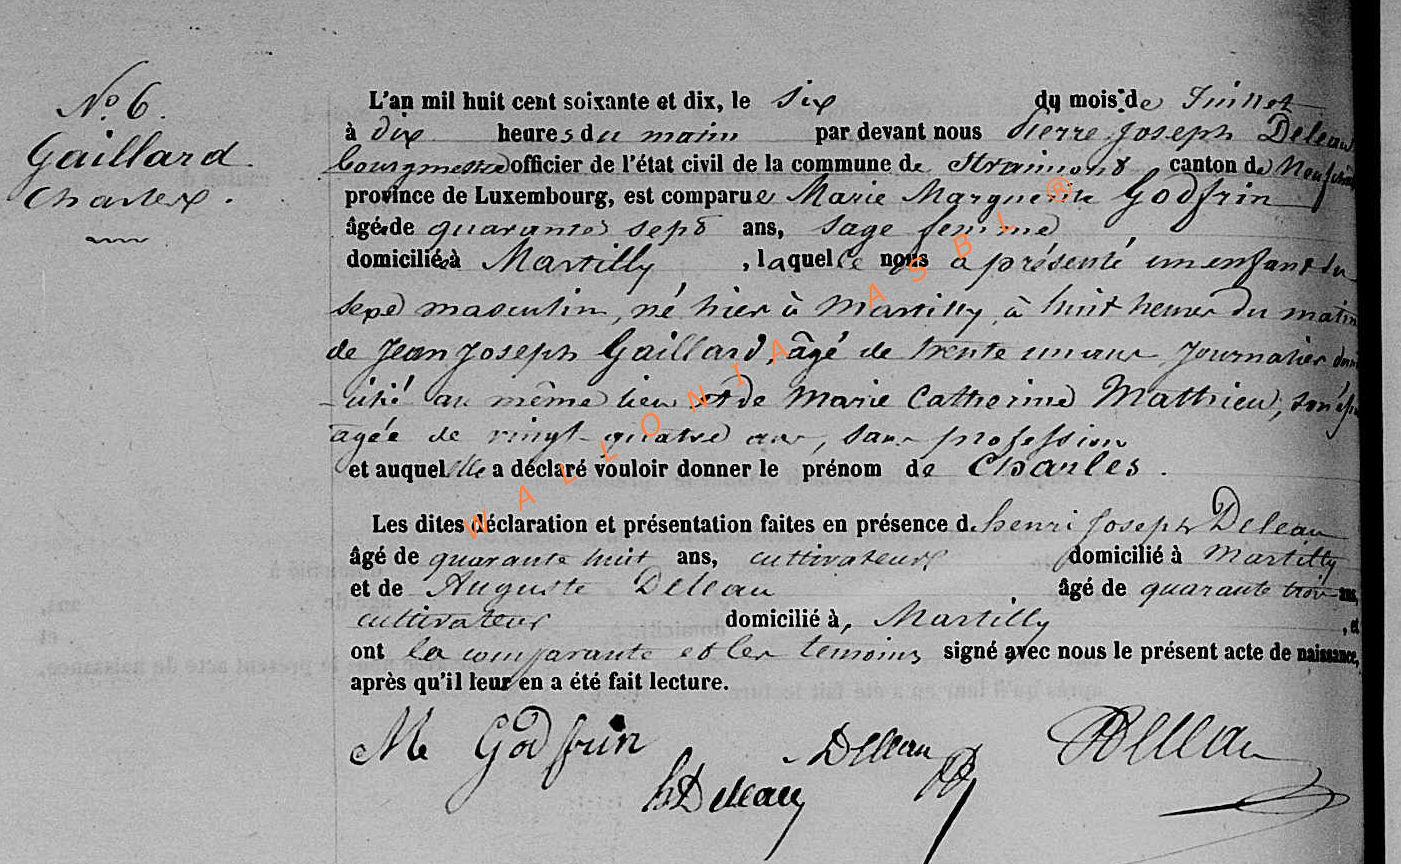 N° 6.
Gaillard
Charles.
L'an mil huit cent soixante et dix, le six du mois de Juillet
à dix heures du matin par devant nous Pierre Joseph Deleau
bourgmestre officier de l'état civil de la commune de Straimont canton de Neufchâ
province de Luxembourg, est comparue Marie Marguerite Godfrin
âgée de quarante sept ans, sage femme
domiciliée à Martilly, laquelle nous a présenté un enfant du
sexe masculin, né hier à Martilly, à huit heures du matin
de Jean Joseph Gaillard, âgé de trente un ans Journalier domi
-cilié au même lieu et de Marie Catherine Mathieu, son épo
agée de vingt-quatre ans, sans profession
et auquel elle a déclaré vouloir donner le prénom de Charles.
Les dites déclaration et présentation faites en présence de henri Joseph Deleau
âgé de quarante huit ans, cultivateur domicilié à Martilly
et de Auguste Deleau âgé de quarante trois ans,
cultivateur domicilié à, Martilly, et
ont la comparante et les témoins signé avec nous le présent acte de naissance,
après qu'il leur en a été fait lecture.
M Godfrin Deleau Deleau
h Deleau
WALLONIA ASBL ®